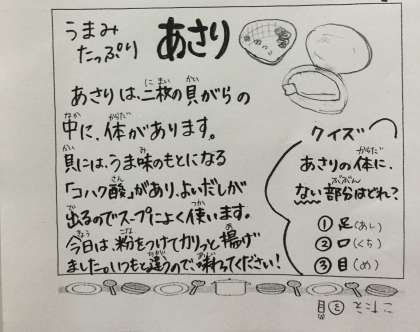 うまみ
たっぷり
あさり
あさりは、二枚の貝がらの
中に、体があります。
貝には、うま味のもとになる
「コハク酸」があり、よいだしが
出るのでスープによく使います。
今日は、粉をつけてカリっと揚げ
ました。いつもと違うので、味わってください!
クイズ
あさりの体に、
ない部分はどれ?
①足(あし)
②口(くち)
③目(め)
こたえ ③目